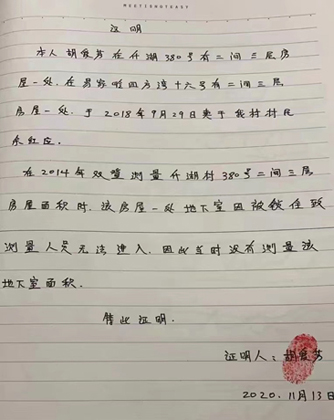 证明
本人胡爱芳在仟湖380号有二间三层房
屋一处.在易家咀四方湾十六号有二间三层
房屋一处.于2018年9月29日卖于我村村民
余红应.
在2014年双登测量仟湖村380号二间三层
房屋面积时.该房屋一处地下室因被锁住致
测量人员无法进入.因此当时没有测量该
地下室面积.
特此证明.
证明人:胡爱芳
2020.11月13日